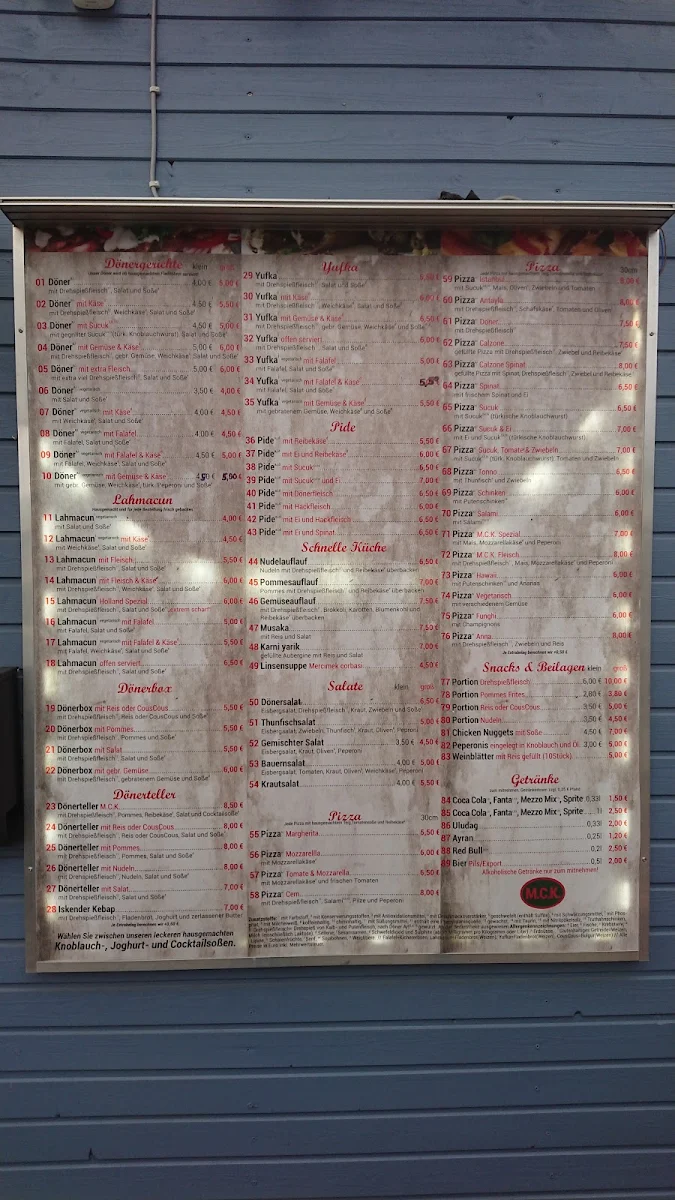 Dönergerichte klein groß
01 Döner 4,00 € 5,00 €
mit Drehspießfleisch, Salat und Soße
02 Döner mit Käse 4,50 € 5,50 €
mit Drehspießfleisch, Weichkäse, Salat und Soße
03 Döner mit Sucuk 4,50 € 5,00 €
mit gegrillter Sucuk (türk. Knoblauchwurst), Salat und Soße
04 Döner mit Gemüse & Käse 5,00 € 6,00 €
mit Drehspießfleisch, gebr. Gemüse, Weichkäse, Salat und Soße
05 Döner mit extra Fleisch 5,00 € 6,00 €
mit extra viel Drehspießfleisch, Salat und Soße
06 Döner vegetarisch 3,50 € 4,00 €
mit Salat und Soße
07 Döner vegetarisch mit Käse 4,00 € 4,50 €
mit Weichkäse, Salat und Soße
08 Döner vegetarisch mit Falafel 4,00 € 4,50 €
mit Falafel, Salat und Soße
09 Döner vegetarisch mit Falafel & Käse 4,50 € 5,00 €
mit Falafel, Weichkäse, Salat und Soße
10 Döner vegetarisch mit Gemüse & Käse 4,50 € 5,00 €
mit gebr. Gemüse, Weichkäse, türk. Peperoni und Soße
Lahmacun
Hausgemacht und für jede Bestellung frisch gebacken
11 Lahmacun vegetarisch 4,00 €
mit Salat und Soße
12 Lahmacun vegetarisch mit Käse 4,50 €
mit Weichkäse, Salat und Soße
13 Lahmacun mit Fleisch 5,50 €
mit Drehspießfleisch, Salat und Soße
14 Lahmacun mit Fleisch & Käse 6,00 €
mit Drehspießfleisch, Weichkäse, Salat und Soße
15 Lahmacun Holland Spezial 6,00 €
mit Drehspießfleisch, Salat und Soße "extrem scharf"
16 Lahmacun vegetarisch mit Falafel 5,00 €
mit Falafel, Salat und Soße
17 Lahmacun vegetarisch mit Falafel & Käse 5,50 €
mit Falafel, Weichkäse, Salat und Soße
18 Lahmacun offen serviert 6,50 €
mit Drehspießfleisch, Salat und Soße
Dönerbox
19 Dönerbox mit Reis oder CousCous 5,50 €
mit Drehspießfleisch, Reis oder CousCous und Soße
20 Dönerbox mit Pommes 5,50 €
mit Drehspießfleisch, Pommes und Soße
21 Dönerbox mit Salat 5,50 €
mit Drehspießfleisch, Salat und Soße
22 Dönerbox mit gebr. Gemüse 6,00 €
mit Drehspießfleisch, gebratenem Gemüse und Soße
Dönerteller
23 Dönerteller M.C.K. 8,50 €
mit Drehspießfleisch, Pommes, Reibekäse, Salat und Cocktailsoße
24 Dönerteller mit Reis oder CousCous 8,00 €
mit Drehspießfleisch, Reis oder CousCous, Salat und Soße
25 Dönerteller mit Pommes 8,00 €
mit Drehspießfleisch, Pommes, Salat und Soße
26 Dönerteller mit Nudeln 8,00 €
mit Drehspießfleisch, Nudeln, Salat und Soße
27 Dönerteller mit Salat 7,00 €
mit Drehspießfleisch, Salat und Soße
28 Iskender Kebap 7,00 €
mit Drehspießfleisch, Fladenbrot, Joghurt und zerlassener Butter
Je Extrabelag berechnen wir +0,50 €
Wählen Sie zwischen unseren leckeren hausgemachten
Knoblauch-, Joghurt- und Cocktailsoßen.
Yufka
29 Yufka
mit Drehspießfleisch, Salat und Soße
30 Yufka mit Käse
mit Drehspießfleisch, Weichkäse, Salat und Soße
31 Yufka mit Gemüse & Käse 6,50 €
mit Drehspießfleisch, gebr. Gemüse, Weichkäse und Soße
32 Yufka offen serviert
mit Drehspießfleisch, Salat und Soße
33 Yufka vegetarisch mit Falafel 5,00 €
mit Falafel, Salat und Soße
34 Yufka vegetarisch mit Falafel & Käse 5,50
mit Falafel, Salat und Soße
35 Yufka vegetarisch mit Gemüse & Käse 5,50 €
mit gebratenem Gemüse, Weichkäse und Soße
Pide
36 Pide mit Reibekäse 5,50 €
37 Pide mit Ei und Reibekäse 6,00 €
38 Pide mit Sucuk 6,50 €
39 Pide mit Sucuk und Ei 7,00 €
40 Pide mit Dönerfleisch 6,50 €
41 Pide mit Hackfleisch 6,00 €
42 Pide mit Ei und Hackfleisch 6,50 €
43 Pide mit Ei und Spinat 6,50 €
Schnelle Küche
44 Nudelauflauf 6,50 €
Nudeln mit Drehspießfleisch und Reibekäse überbacken
45 Pommesauflauf 7,00 €
Pommes mit Drehspießfleisch und Reibekäse überbacken
46 Gemüseauflauf 7,00 €
mit Drehspießfleisch, Brokkoli, Karotten, Blumenkohl und
Reibekäse überbacken
47 Musaka 7,50 €
mit Reis und Salat
48 Karni yarik 7,00 €
gefüllte Aubergine mit Reis und Salat
49 Linsensuppe Mercimek corbasi 4,50 €
Salate klein groß
50 Dönersalat 6,50 €
Eisbergsalat, Drehspießfleisch, Kraut, Zwiebeln und Soße
51 Thunfischsalat 5,00 €
Eisbergsalat, Zwiebeln, Thunfisch, Kraut, Oliven, Peperoni
52 Gemischter Salat 3,50 € 4,50 €
Eisbergsalat, Kraut, Oliven, Peperoni
53 Bauernsalat 4,00 € 5,00 €
Eisbergsalat, Tomaten, Kraut, Oliven, Weichkäse, Peperoni
54 Krautsalat 4,00 € 5,50 €
Pizza 30cm
55 Pizza Margherita 5,50 €
56 Pizza Mozzarella 6,00 €
mit Mozzarellakäse
57 Pizza Tomate & Mozzarella 6,50 €
mit Mozzarellakäse und frischen Tomaten
58 Pizza Cem 8,00 €
mit Drehspießfleisch, Salami, Pilze und Peperoni
Pizza 30cm
59 Pizza Istanbul
mit Sucuk, Mais, Oliven, Zwiebeln und Tomaten
60 Pizza Antalya
mit Drehspießfleisch, Schafskäse, Tomaten und Oliven
61 Pizza Döner 7,50 €
mit Drehspießfleisch
62 Pizza Calzone 7,50 €
gefüllte Pizza mit Drehspießfleisch, Zwiebel und Reibekäse
63 Pizza Calzone Spinat 8,00 €
gefüllte Pizza mit Spinat, Drehspießfleisch, Zwiebel und Reibekäse
64 Pizza Spinat 6,50 €
mit frischem Spinat und Ei
65 Pizza Sucuk 6,50 €
mit Sucuk (türkische Knoblauchwurst)
66 Pizza Sucuk & Ei 7,00 €
mit Ei und Sucuk (türkische Knoblauchwurst)
67 Pizza Sucuk, Tomate & Zwiebeln 7,00 €
mit Sucuk (türk. Knoblauchwurst), Tomaten und Zwiebeln
68 Pizza Tonno 6,50 €
mit Thunfisch und Zwiebeln
69 Pizza Schinken 6,00 €
mit Putenschinken
70 Pizza Salami 6,00 €
mit Salami
71 Pizza M.C.K. Spezial 7,00 €
mit Mais, Mozzarellakäse und Peperoni
72 Pizza M.C.K. Fleisch 8,00 €
mit Drehspießfleisch, Mais, Mozzarellakäse und Peperoni
73 Pizza Hawaii 6,00 €
mit Putenschinken und Ananas
74 Pizza Vegetarisch 6,00 €
mit verschiedenem Gemüse
75 Pizza Funghi 6,00 €
mit Champignons
76 Pizza Anna 8,00 €
mit Drehspießfleisch, Zwiebeln und Reis
Je Extrabelag berechnen wir +0,50 €
Snacks & Beilagen klein groß
77 Portion Drehspießfleisch 6,00 € 10,00 €
78 Portion Pommes Frites 2,80 € 3,80 €
79 Portion Reis oder CousCous 3,50 € 5,00 €
80 Portion Nudeln 3,50 € 4,50 €
81 Chicken Nuggets mit Soße 4,50 € 7,00 €
82 Peperonis eingelegt in Knoblauch und Öl 3,00 € 5,00 €
83 Weinblätter mit Reis gefüllt (10Stück) 5,00 €
Getränke
84 Coca Cola, Fanta, Mezzo Mix, Sprite 0,33l 1,50 €
85 Coca Cola, Fanta, Mezzo Mix, Sprite 1l 2,50 €
86 Uludag 0,33l 2,00 €
87 Ayran 0,25l 1,20 €
88 Red Bull 0,2l 2,50 €
89 Bier Pils/Export 0,5l 2,00 €
Alkoholische Getränke nur zum mitnehmen!
M.C.K.